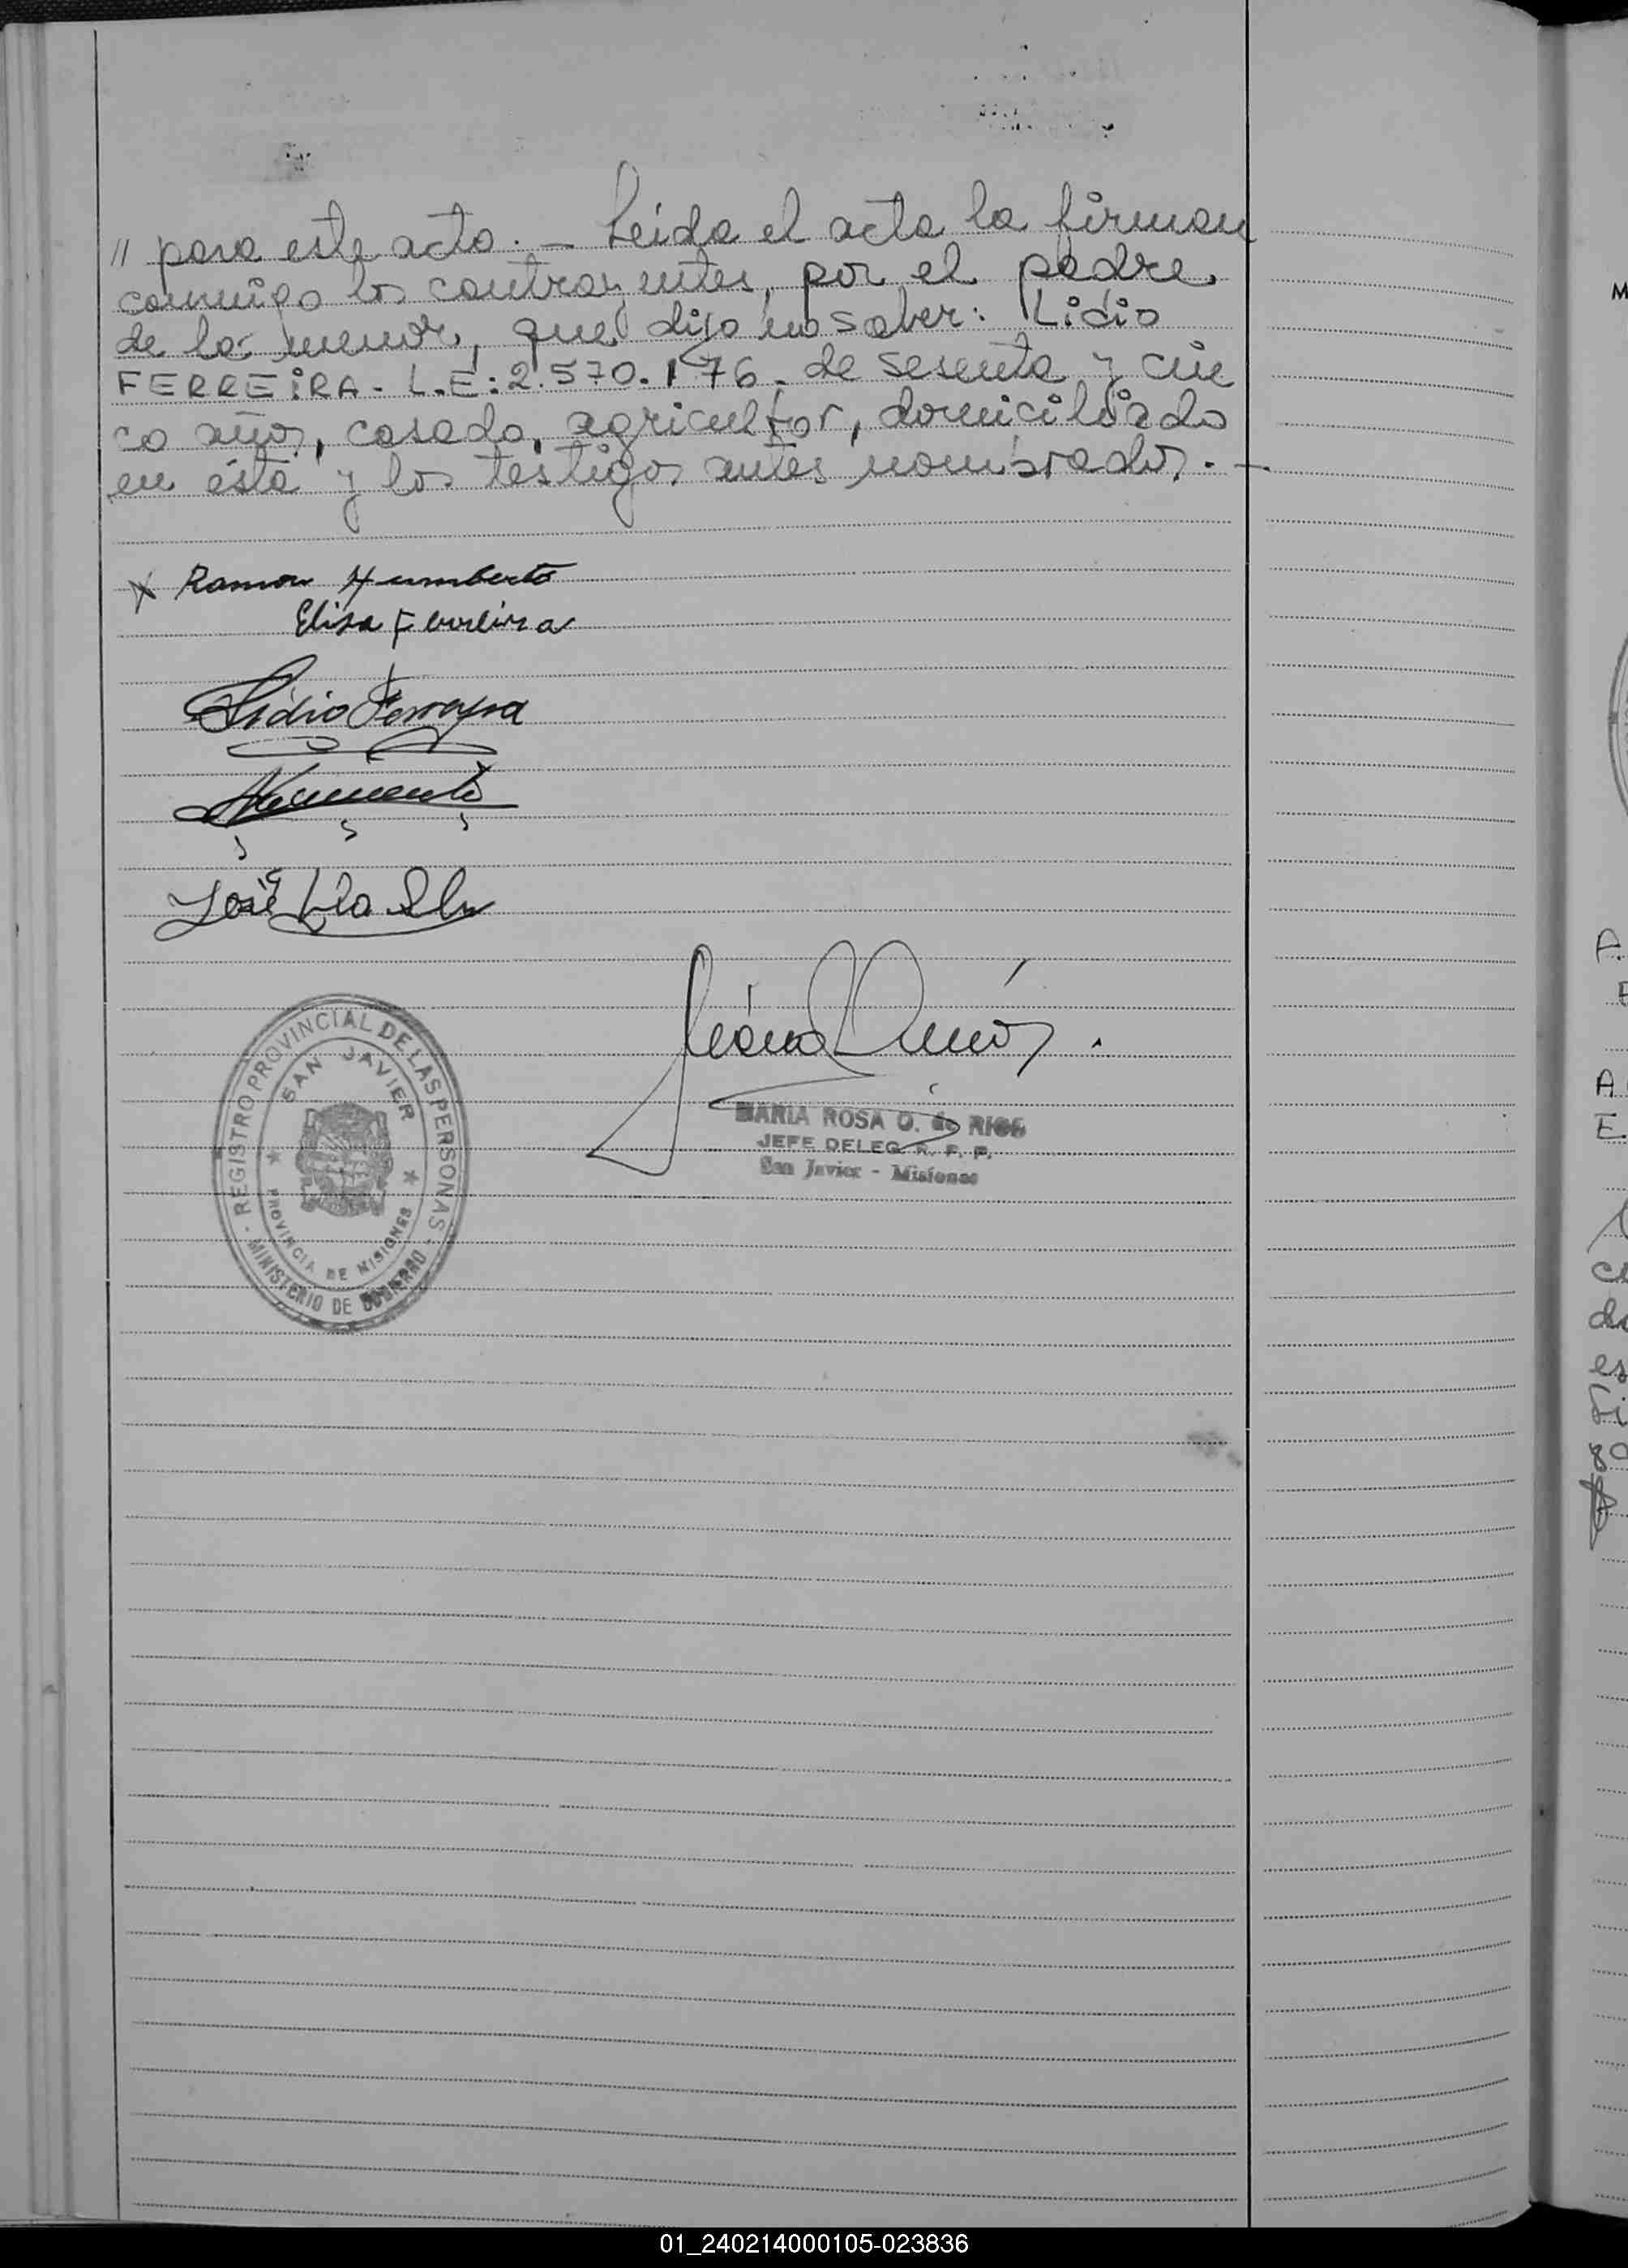 // para este acto. — Leída el acta la firman
conmigo los contrayentes, por el padre
de la menor, que dijo no saber: Lidio
FERREIRA - L.E: 2.570.176 - de sesenta y cin
co años, casado, agricultor, domiciliado
en ésta y los testigos antes nombrados. —
X Ramon Humberto
Elisa Ferreira
Lidio Ferreyra
José
REGISTRO PROVINCIAL DE LAS PERSONAS
SAN JAVIER
PROVINCIA DE MISIONES
MINISTERIO DE GOBIERNO
MARIA ROSA O. de RIOS
JEFE DELEG. R. P. P.
San Javier - Misiones
M
A.
E.
01_240214000105-023836